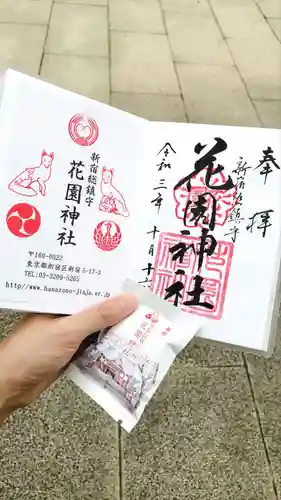 奉拝
新宿総鎮守
花園神社
令和三年十月十
新宿総鎮守
花園神社
〒160-0022
東京都新宿区新宿5-17-3
TEL:03-3209-5265
http://www.hanazono-jinja.or.jp
花園神社